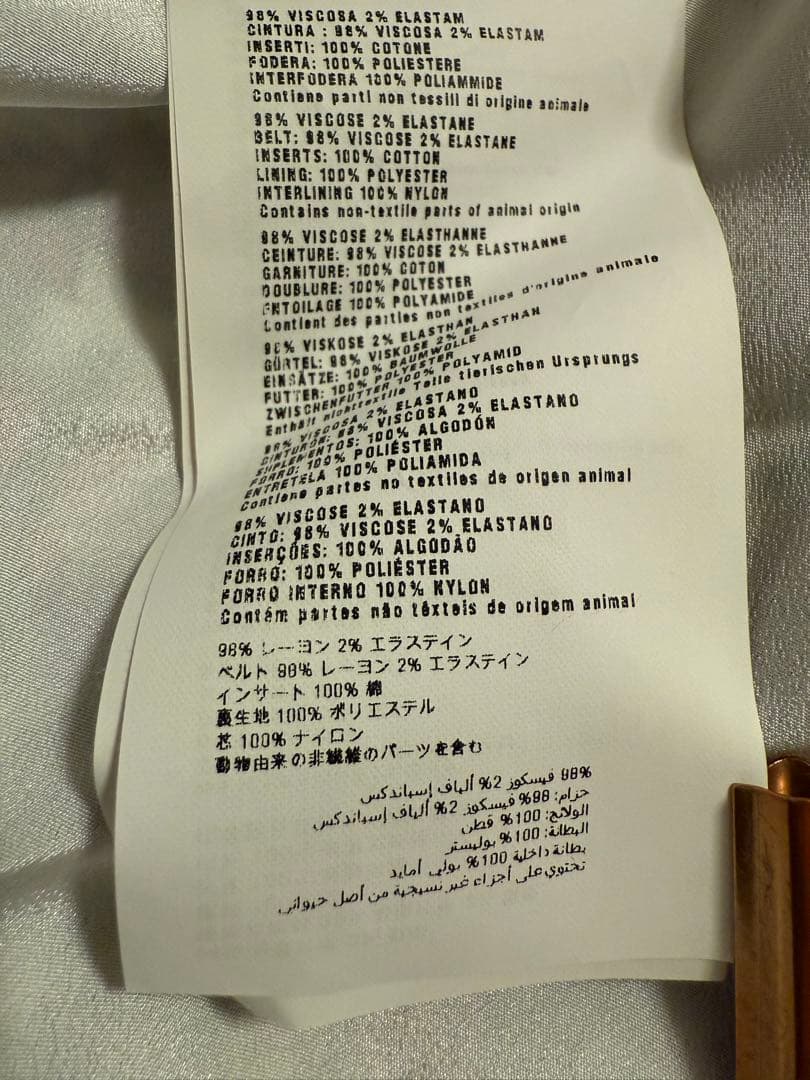 98% VISCOSA 2% ELASTAM
CINTURA : 98% VISCOSA 2% ELASTAM
INSERTI: 100% COTONE
FODERA: 100% POLIESTERE
INTERFODERA 100% POLIAMMIDE
Contiene parti non tessili di origine animale
98% VISCOSE 2% ELASTANE
BELT: 98% VISCOSE 2% ELASTANE
INSERTS: 100% COTTON
LINING: 100% POLYESTER
INTERLINING 100% NYLON
Contains non-textile parts of animal origin
98% VISCOSE 2% ELASTHANNE
CEINTURE: 98% VISCOSE 2% ELASTHANNE
GARNITURE: 100% COTON
DOUBLURE: 100% POLYESTER
ENTOILAGE 100% POLYAMIDE
Contient des parties non textiles d'origine animale
98% VISKOSE 2% ELASTHAN
GÜRTEL: 98% VISKOSE 2% ELASTHAN
EINSÄTZE: 100% BAUMWOLLE
FUTTER: 100% POLYESTER
ZWISCHENFUTTER 100% POLYAMID
Enthält nichttextile Teile tierischen Ursprungs
98% VISCOSA 2% ELASTANO
CINTURÓN: 98% VISCOSA 2% ELASTANO
SUPLEMENTOS: 100% ALGODÓN
FORRO: 100% POLIÉSTER
ENTRETELA 100% POLIAMIDA
Contiene partes no textiles de origen animal
98% VISCOSE 2% ELASTANO
CINTO: 98% VISCOSE 2% ELASTANO
INSERÇÕES: 100% ALGODÃO
FORRO: 100% POLIÉSTER
FORRO INTERNO 100% NYLON
Contém partes não têxteis de origem animal
98% レーヨン 2% エラステイン
ベルト 98% レーヨン 2% エラステイン
インサート 100% 綿
裏生地 100% ポリエステル
芯 100% ナイロン
動物由来の非繊維のパーツを含む
98% فيسكوز 2% ألياف إسباندكس
حزام: 98% فيسكوز 2% ألياف إسباندكس
الولائج: 100% قطن
البطانة: 100% بوليستر
بطانة داخلية 100% بولي أمايد
تحتوي على أجزاء غير نسيجية من أصل حيواني